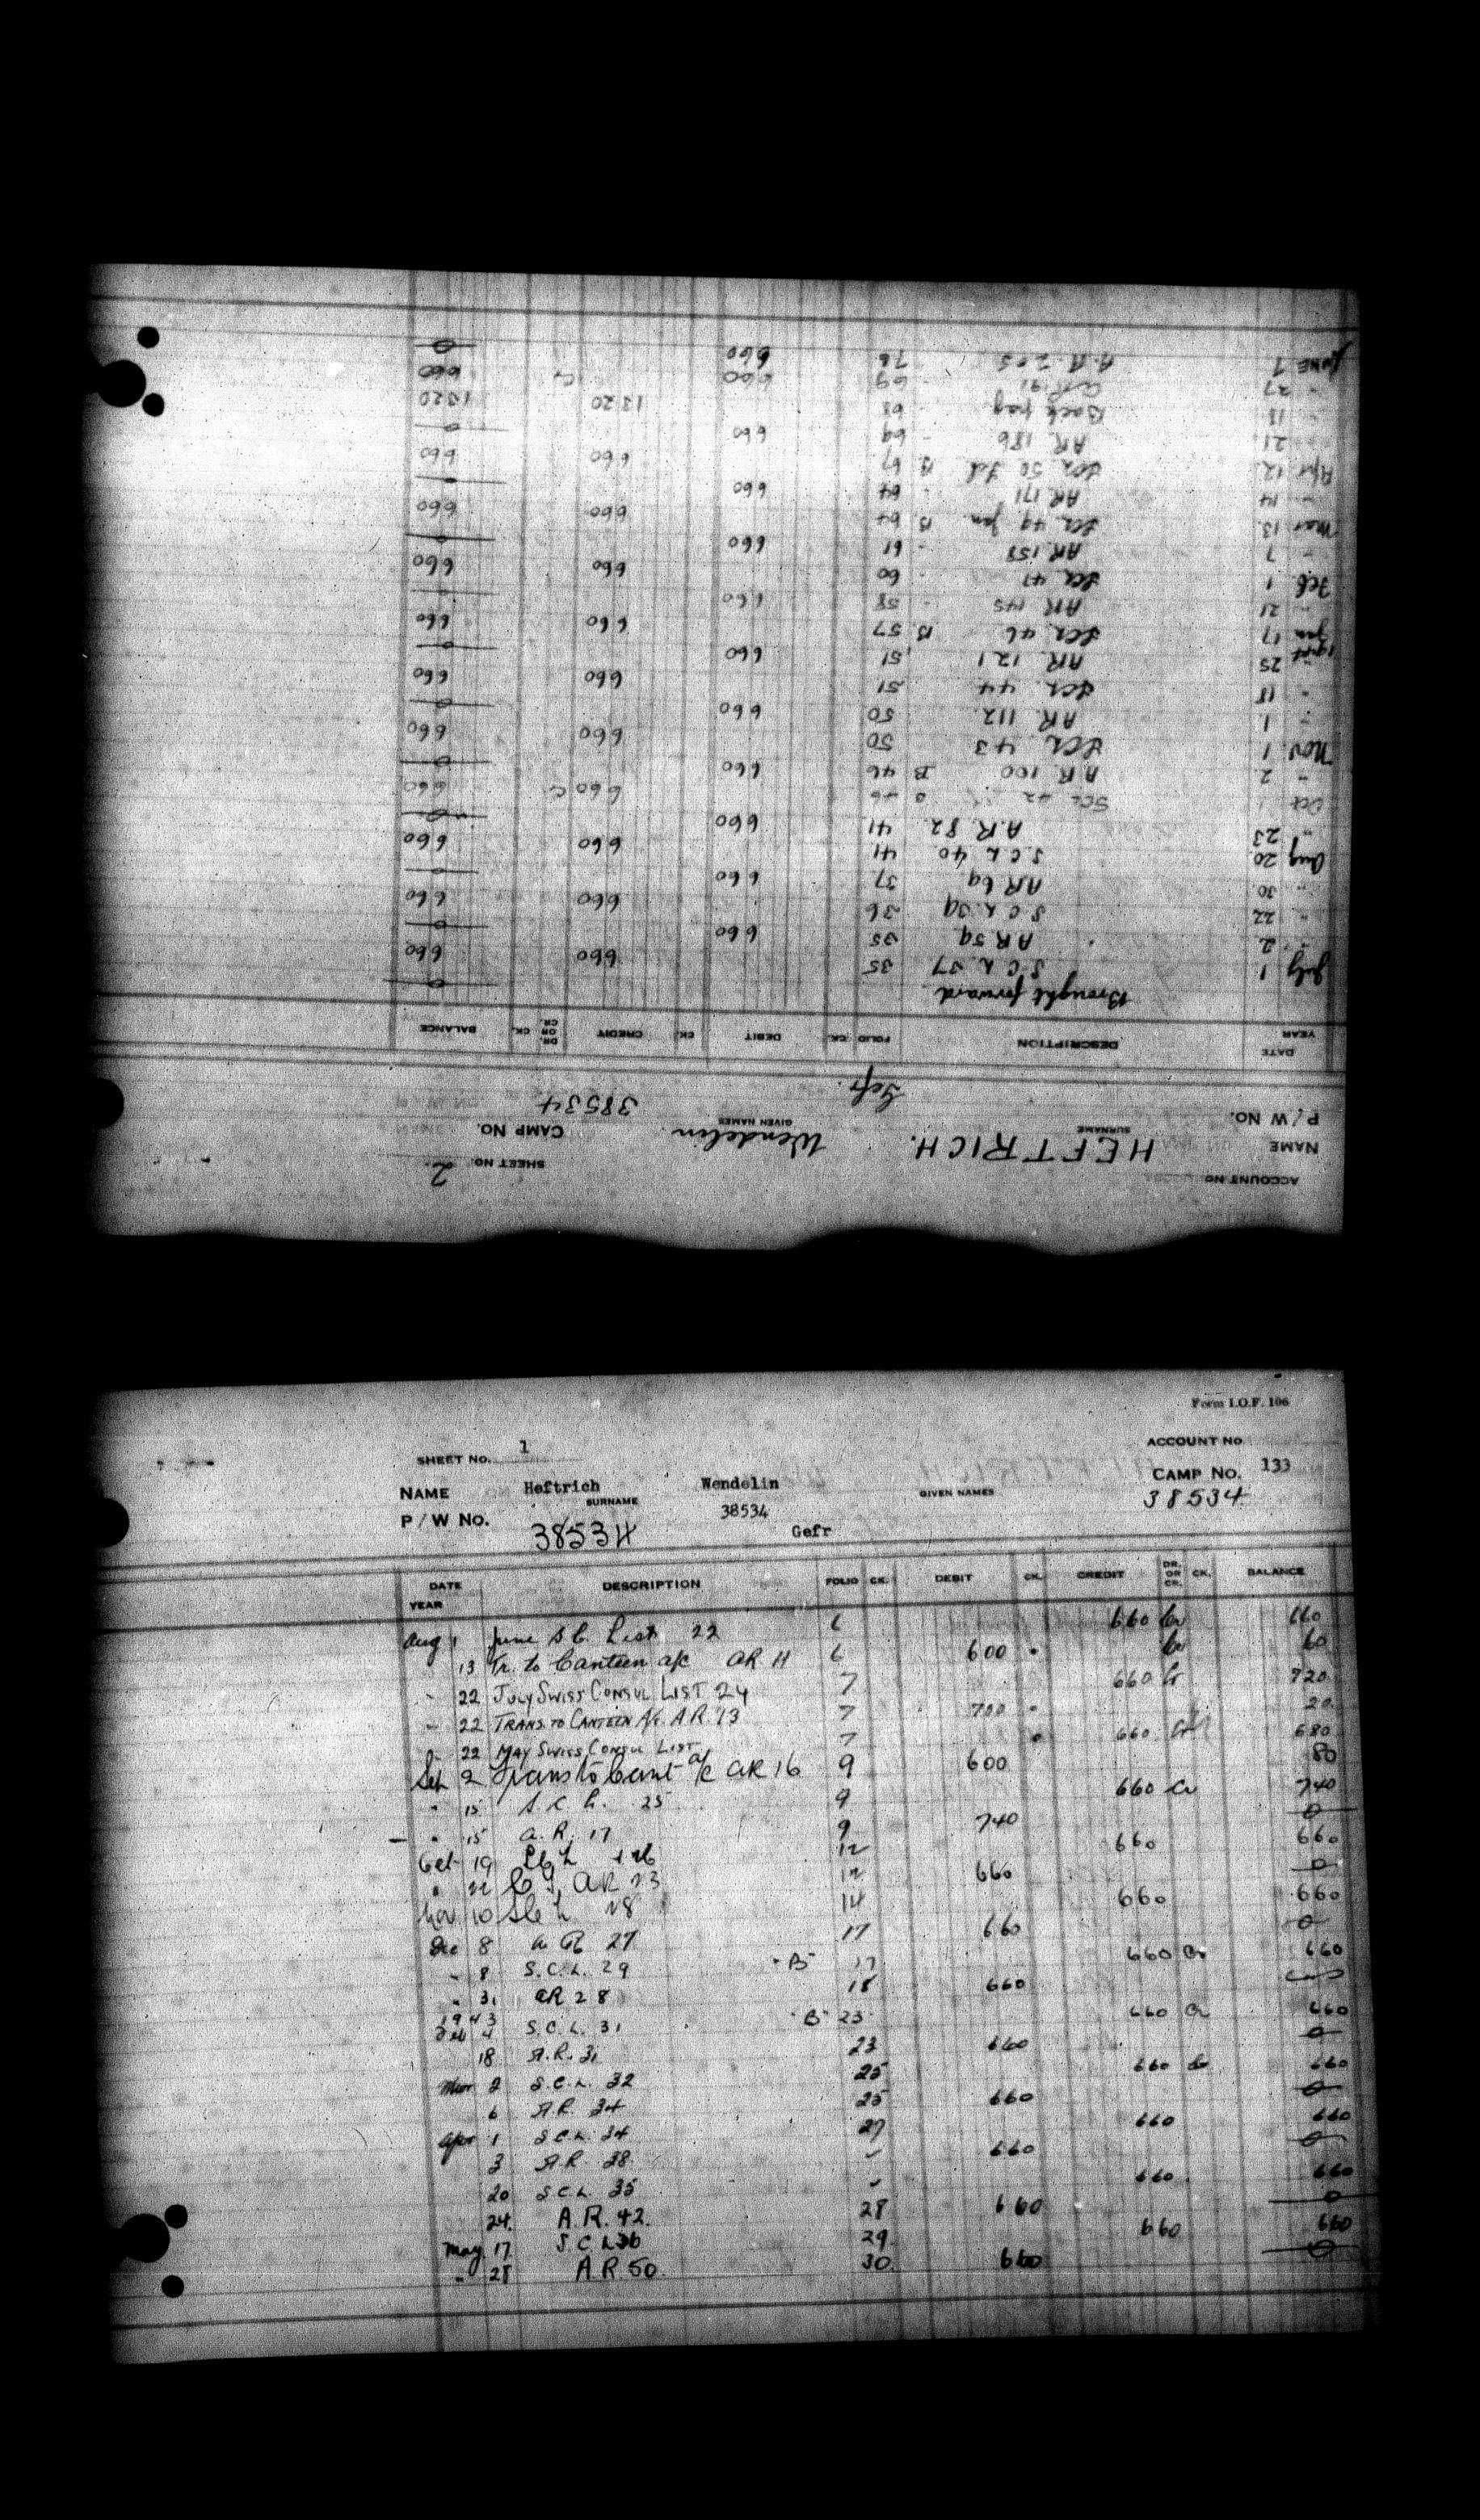 Form I.O.F. 106
SHEET NO. 1 ACCOUNT NO
NAME Heftrich Wendelin CAMP NO. 133
SURNAME GIVEN NAMES 38534
P/W NO. 38534 38534 Gefr
DATE DESCRIPTION FOLIO CK. DEBIT CK. CREDIT DR. OR CR. CK. BALANCE
YEAR
Aug 1 June S C. List 22 6 660 Cr 660
13 Tr. to Canteen a/c AR 11 6 600 Cr 60
" 22 JULY SWISS CONSUL LIST 24 7 660 Cr 720
" 22 TRANS. TO CANTEEN A/C. A.R. 13 7 700 20
" 22 MAY SWISS CONSUL LIST 7 660 Cr 680
Sep 2 Trans to Cant a/c AR 16 9 600 80
" 15 S.C.L. 25 9 660 Cr 740
" 15 A.R. 17 9 740 0
Oct 19 12 660 660
" 22 AR 23 12 660 0
Nov 10 28 14 660 660
Dec 8 A R 27 17 660 0
" 8 S.C.L. 29 B 17 660 Cr 660
" 31 AR 28 18 660 0
1943
Feb 4 S.C.L. 31 B 23 660 Cr 660
18 A.R. 31 23 660 0
Mar 2 S.C.L. 32 25 660 Cr 660
6 A.R. 34 25 660 0
Apr 1 S.C.L. 34 27 660 660
3 A.R. 38 " 660 0
20 S.C.L. 35 " 660 660
24 A.R. 42. 28 660 0
May 17 S.C.L 36 29 660 660
" 28 A.R. 50. 30. 660 0
ACCOUNT NO SHEET NO. 2
NAME HEFTRICH. Wendelin CAMP NO.
SURNAME GIVEN NAMES 38534
P/W NO. Gefr.
DATE DESCRIPTION FOLIO CK. DEBIT CK. CREDIT DR. OR CR. CK. BALANCE
YEAR
Brought forward 0
July 1 S.C.L. 37 35 660 660
" 2 AR 59 35 660 0
" 22 S.C.L. 39 36 660 660
" 30 AR 69 37 660 0
Aug 20 S.C.L. 40 41 660 660
" 23 A.R. 82 41 660 0
Oct SCL 42 46 660 C 660
" 2 A.R. 100 B 46 660 0
Nov 1 SCL 43 50 660 660
" 1 AR 112 50 660 0
" 18 SCL 44 51 660 660
" 25 AR 121 51 660 0
1944
Jan 17 SCL 46 B 57 660 660
" 21 AR 145 58 660 0
Feb 1 SCL 47 60 660 660
" 7 AR 158 61 660 0
Mar 13 SCL 49 Jan B 64 660 660
" 14 AR 171 64 660 0
Apr 12 SCL 50 Feb B 67 660 660
" 21 AR 186 69 660 0
" 18 Back pay 68 1320 1320
" 27 AR 91 69 660 660
JUNE 7 A.R. 205 76 660 0